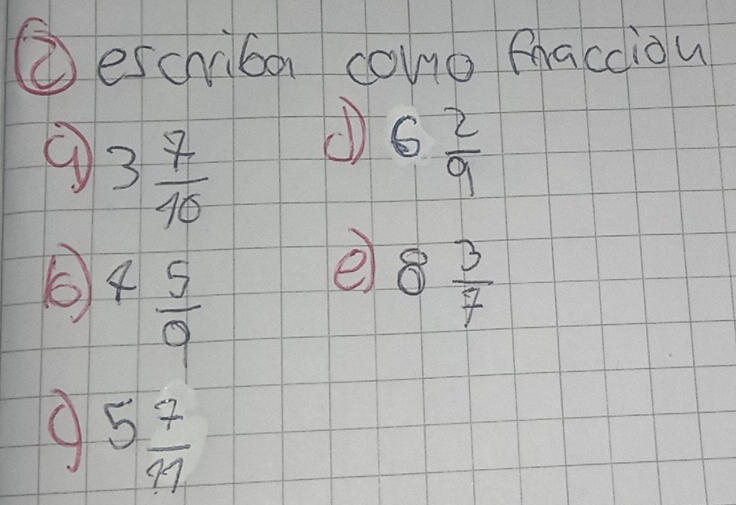 ② escriba como fracción
a) 3 7/10
d) 6 2/9
b) 4 5/9
e) 8 3/7
c) 5 7/11